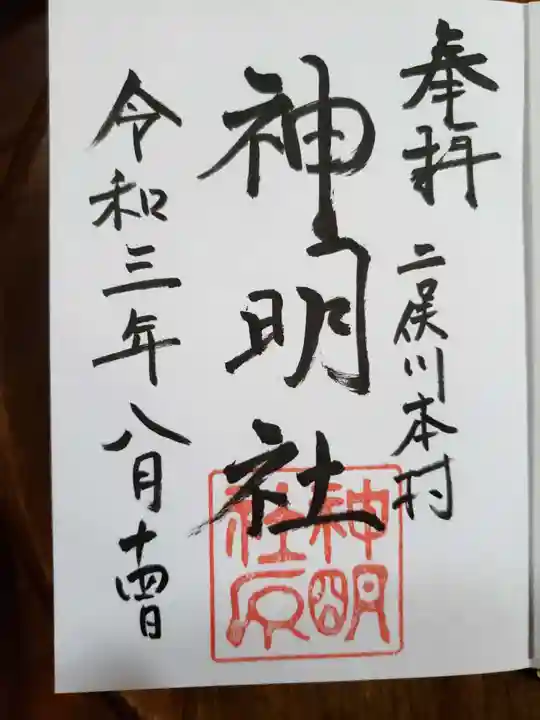 奉拝
二俣川本村
神明社
神明社印
令和三年八月十四日